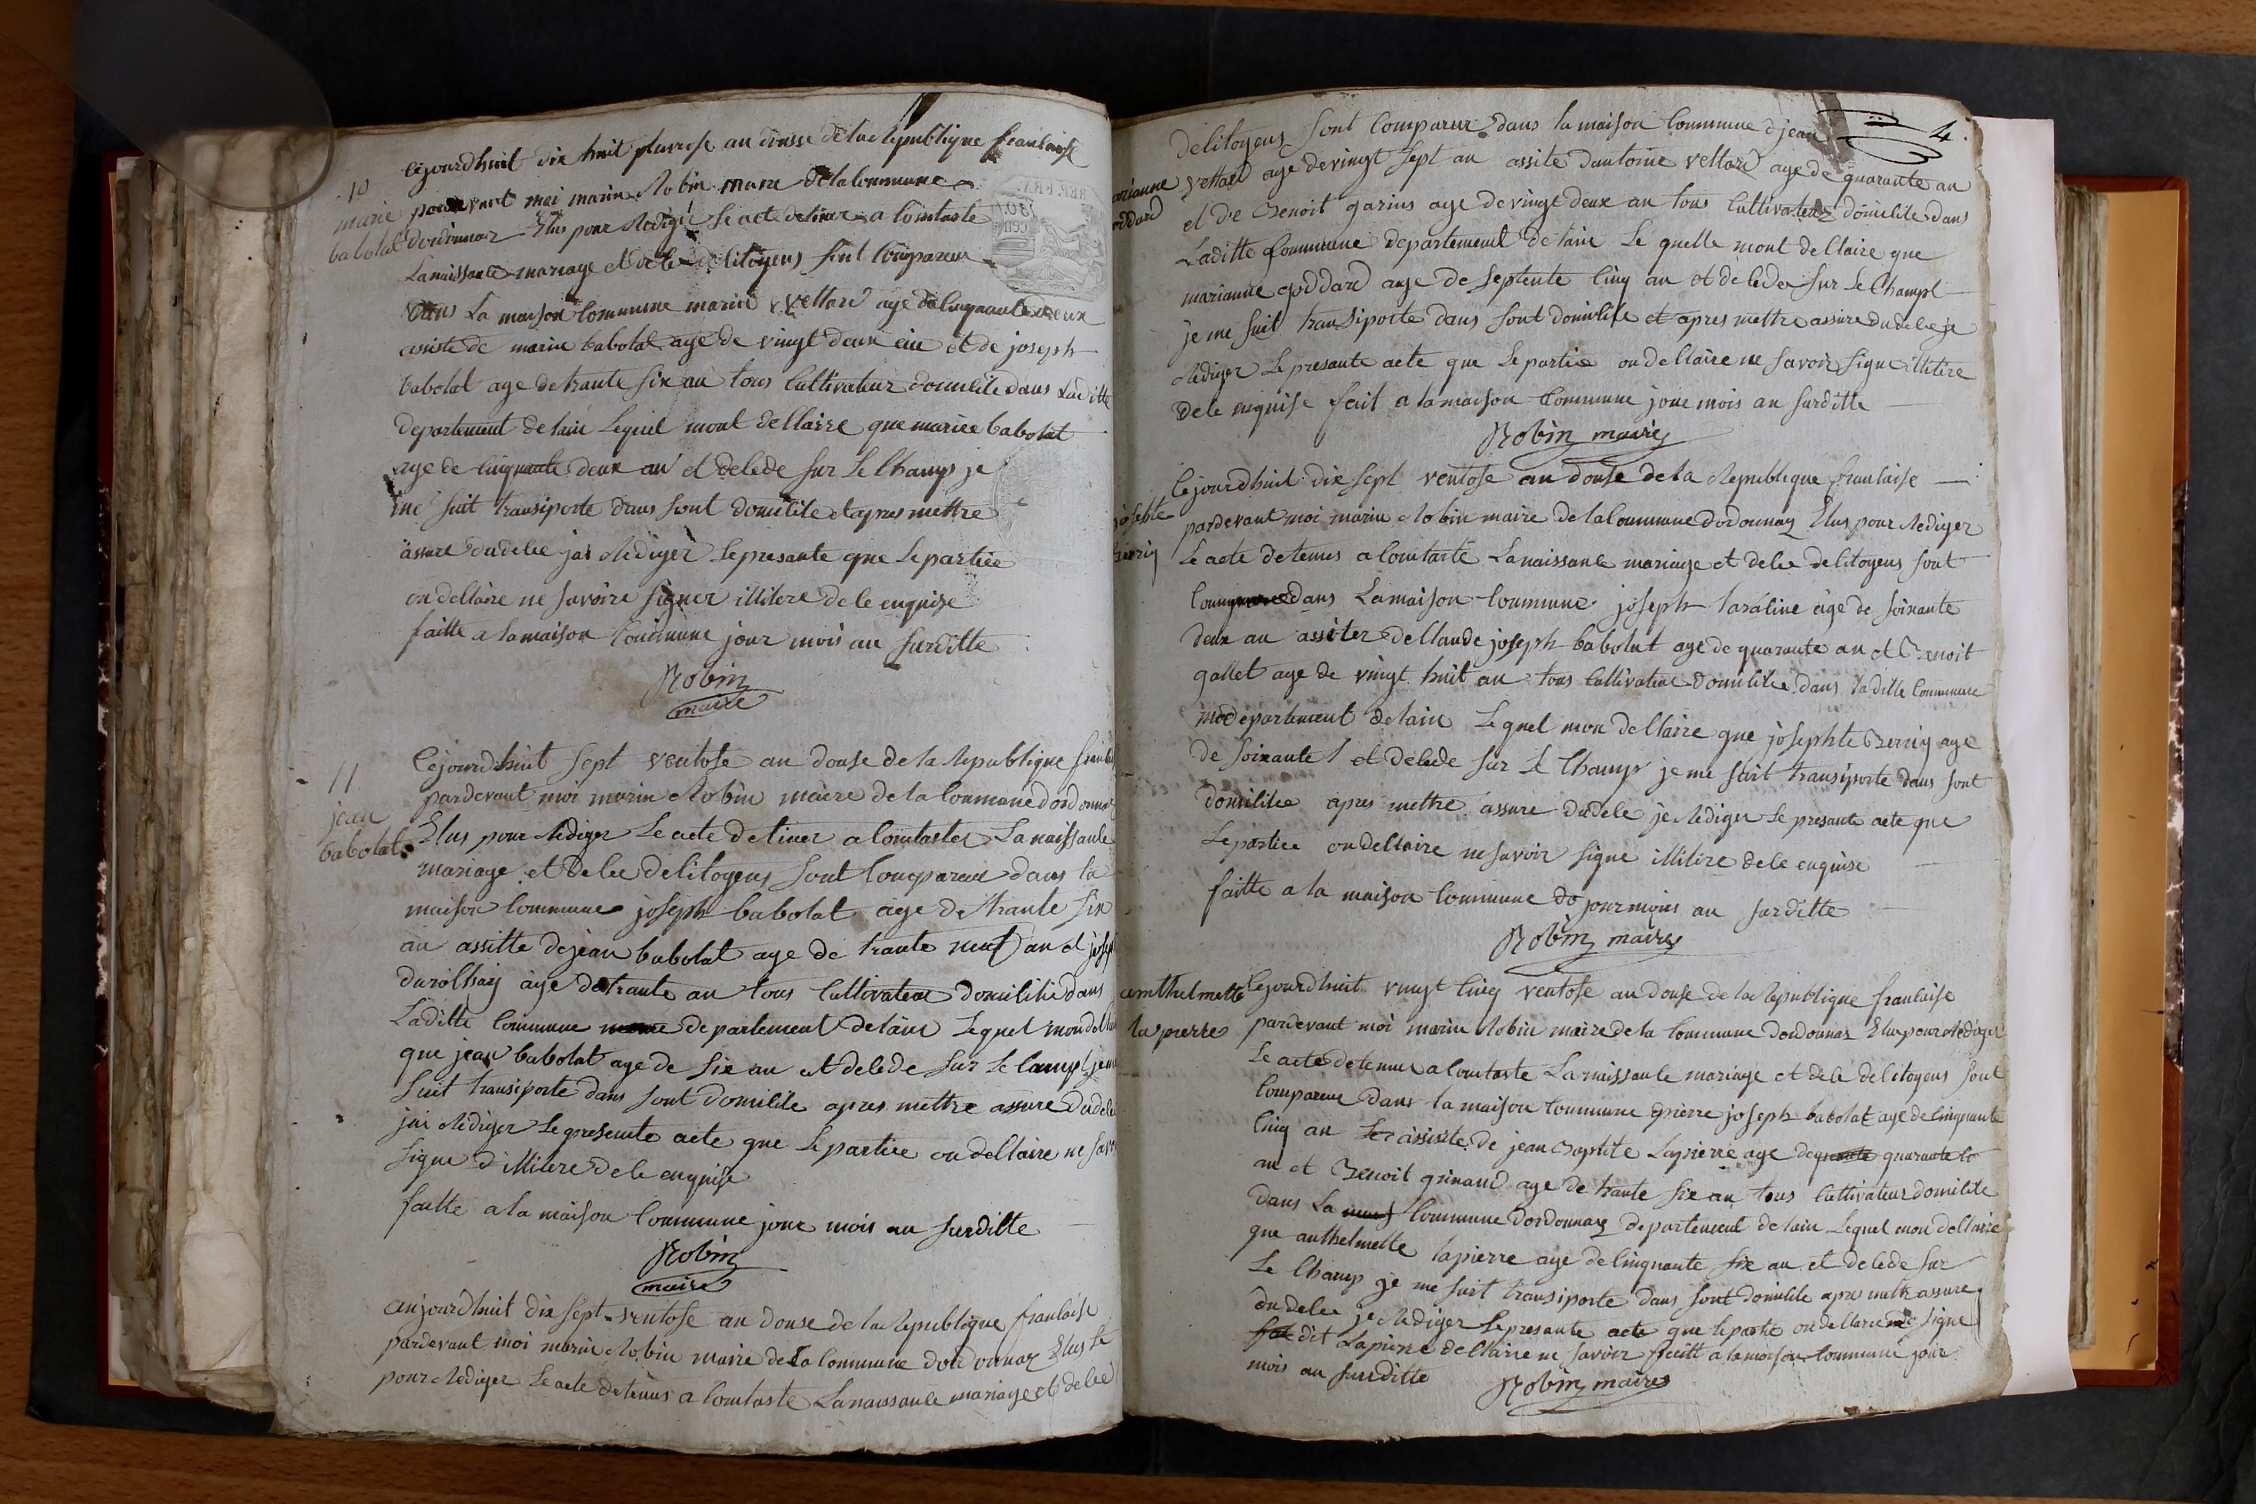 10
marie
babolat
Cejourdhuit dix huit pluviose an douse de la Republique franlaise
pardevant moi marin Robin maire de la Commune
dordonnaz Elus pour Rediger le acte detiner a Comtaste
La naissance mariage et dele delitoyens sont Compareu
dans La maison Commune marin vettard age de linquante deux
assiste de marin babolat age de vingt deux an et de joseph
babolat age de trante six an tous Cultivateur domilile dans Laditte
departement de lain Lequel mont dellaire que mariee babolat
age de linquante deux an et delede sur le Champ je
me suit transiporte dans sont domilile et apres mettre
assure dudelee jai Rediger le presante que le partiee
on dellaire ne savoire signer illitere dele enquise
faitte a la maison Commune jour mois an surditte
Robin
maire
11
jean
babolat
Cejourdhuit sept ventose an douse de la Republique
pardevant moi marin Robin maire de la Commune dordonnaz
Elus pour Rediger le acte detiner a Comtaster La naissanle
mariage et delee delitoyens sont Compareu dans la
maison Commune joseph babolat age de trante six
an assitte dejean babolat age de trante neuf an et
age de trante an tous Cultivateur domilitie dans
Laditte Commune departement de lain Lequel
que jean babolat age de six an et delede sur le lamp
suit transiporte dans sont domilile apres mettre assure
jai Rediger le presente acte que le partiee on dellaire ne
signe dillitere dele enquise
faitte a la maison Commune jour mois an surditte
Robin
maire
aujourdhuit dix sept ventose an douse de la Republique franlaise
pardevant moi marin Robin maire de la Commune dordonnaz Elus le
pour Rediger le acte detenus a Comtaste La naissanle mariage et delee
4
delitoyens sont Compareu dans la maison Commune djean
vettard age de vingt sept an assite dantoine vettard age de quarante an
et de Benoit garins age de vingt deux an tous Cultivateur domilile dans
Laditte Commune departement de lain Le quelle mont dellaire que
marianne goddard age de septente linq an et de lede sur le Champt
je me suit transiporte dans sont domilile et apres mettre assure dudele je
Rediger Le presante acte que le partie on dellaire ne savoir signe illitere
dele enquise fait a la maison Commune jour mois an surditte
Robin maire
Cejourdhuit dix sept ventose an douse de la Republique franlaise
pardevant moi marin Robin maire de la Commune dordonnaz Elus pour Rediger
Le acte detenus a Comtaste La naissanle mariage et delee delitoyens sont
dans La maison Commune joseph age de soixante
deux an assiter dellaude joseph babolat age de quarante an et Benoit
gallet age de vingt huit an tous Cultivateur domilile dans laditte Commune
departement de lain Lequel mon dellaire que josephte age
de soixante et delede sur le Champ je me suit transiporte dans sont
domililee apres mettre assure dudele je Rediger le presante acte que
Le partiee on dellaire ne savoir signe illitere dele enquise
faitte a la maison Commune do jour mois an surditte
Robin maire
anthelmette
lapierre
Cejourdhuit vingt linq ventose an douse de la Republique franlaise
pardevant moi marin Robin maire de la Commune dordonnaz Elus pour Rediger
Le acte detenus a Comtaste La naissanle mariage et dele delitoyens sont
Compareu dans la maison Commune pierre joseph babolat age de linquante
linq an assiste de jean Baptite Lapierre age de quarante
an et Benoit grinand age de trante six an tous Cultivateur domilile
dans La Commune dordonnaz departement de lain Lequel mon dellaire
que anthelmette lapierre age de linquante six an et delede sur
Le Champ je me suit transiporte dans sont domilile apres mettre assure
du delee je Rediger le presante acte que le partie on dellaire ne signe
dit Lapierre dellaire ne savoir faitte a la maison Commune jour
mois an surditte
Robin maire